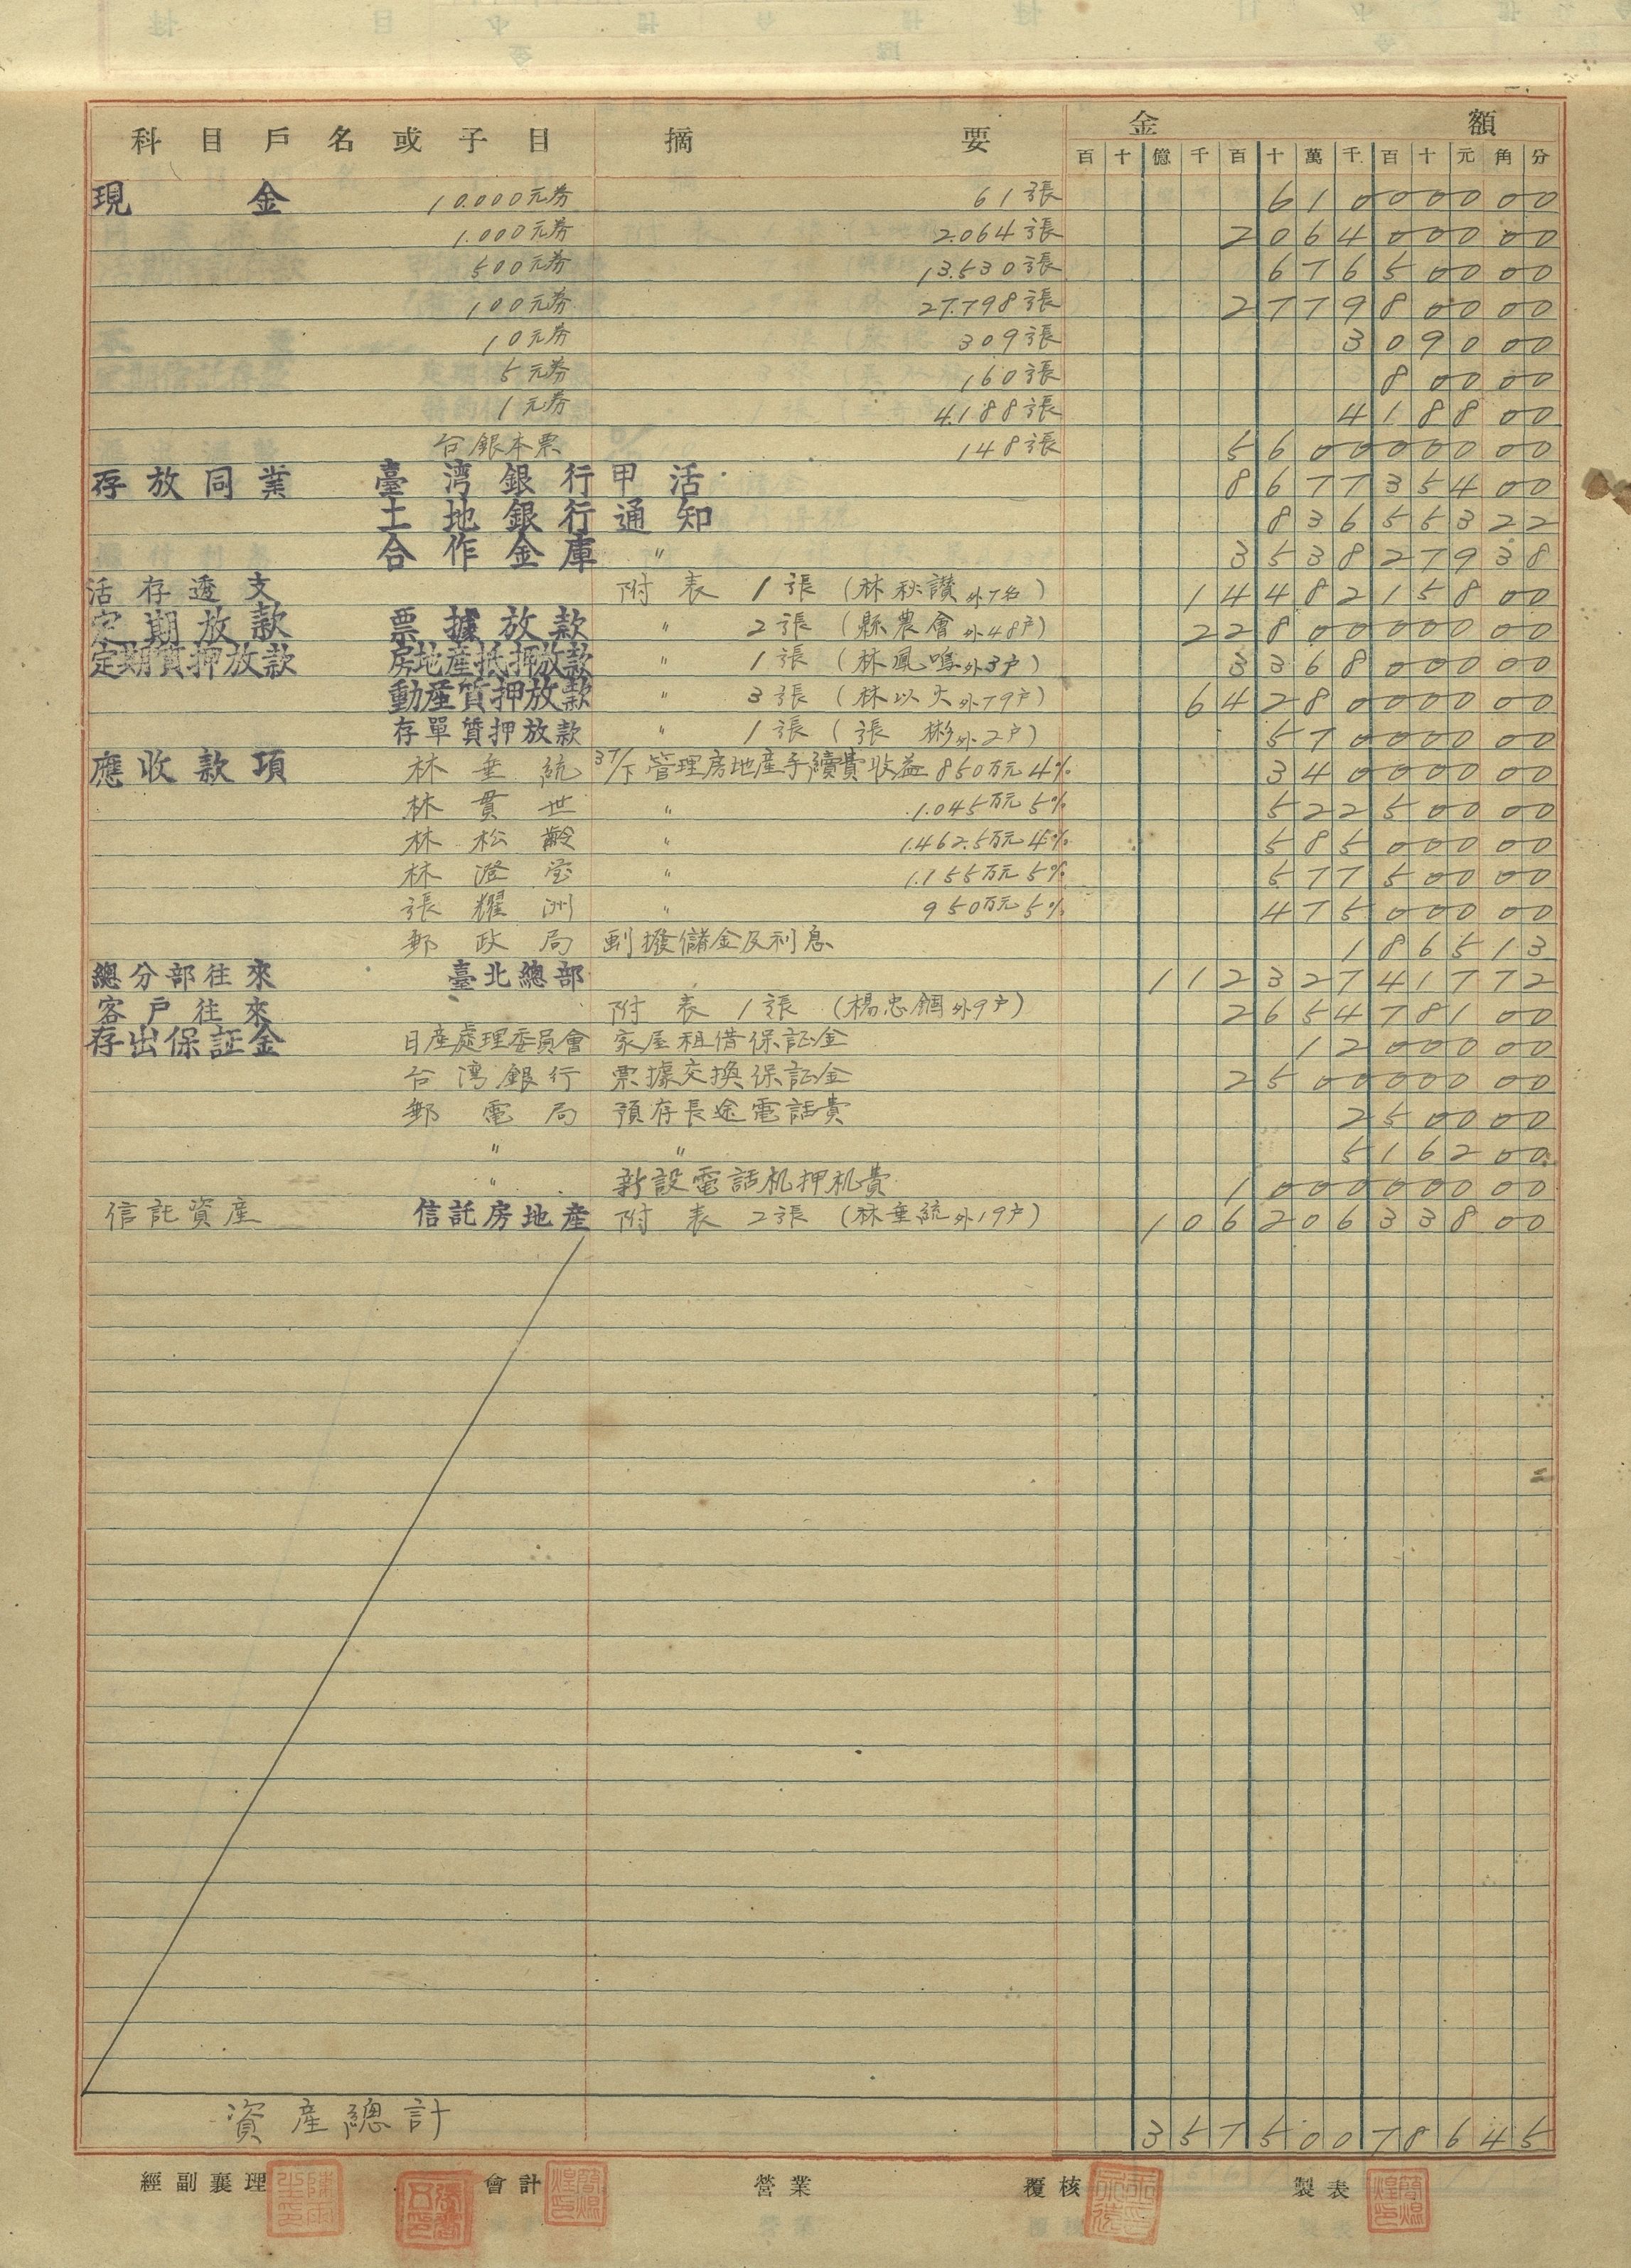 科目戶名或子目 摘要 金額
百十億千百十萬千百十元角分
現金 10.000元券 61張 610000.00
1.000元券 2.064張 2064000.00
500元券 13.530張 6765000.00
100元券 27.798張 2779800.00
10元券 309張 3090.00
5元券 160張 800.00
1元券 4.188張 4188.00
台銀本票 148張 5600000.00
存放同業 臺灣銀行甲活 8677354.00
土地銀行通知 836553.22
合作金庫 〃 3538279.38
活存透支 附表 1張 (林秋讃外7名) 14482158.00
定期放款 票據放款 〃 2張 (縣農會外48戶) 22800000.00
定期質押放款 房地產抵押放款 〃 1張 (林鳳鳴外3戶) 3368000.00
動產質押放款 〃 3張 (林以火外79戶) 64280000.00
存單質押放款 〃 1張 (張彬外2戶) 570000.00
應收款項 林垂統 37/下 管理房地産手續費收益 850万元 4% 340000.00
林貫世 〃 1.045万元 5% 522500.00
林松齡 〃 1.462.5万元 4% 585000.00
林澄 〃 1.155万元 5% 577500.00
張耀洲 〃 950万元 5% 475000.00
郵政局 劃撥儲金及利息 1865.13
總分部往來 臺北總部 112327417.72
客戶往來 附表 1張 (楊忠錮外9戶) 2654781.00
存出保証金 日産處理委員會 家屋租借保証金 12000.00
台灣銀行 票據交換保証金 2500000.00
郵電局 預存長途電話費 2500.00
〃 〃 5162.00
〃 新設電話机押机費 1000000.00
信託資産 信託房地產 附表 2張 (林垂統外19戶) 106206338.00
資産總計 357500786.45
經副襄理 會計 營業 覆核 製表